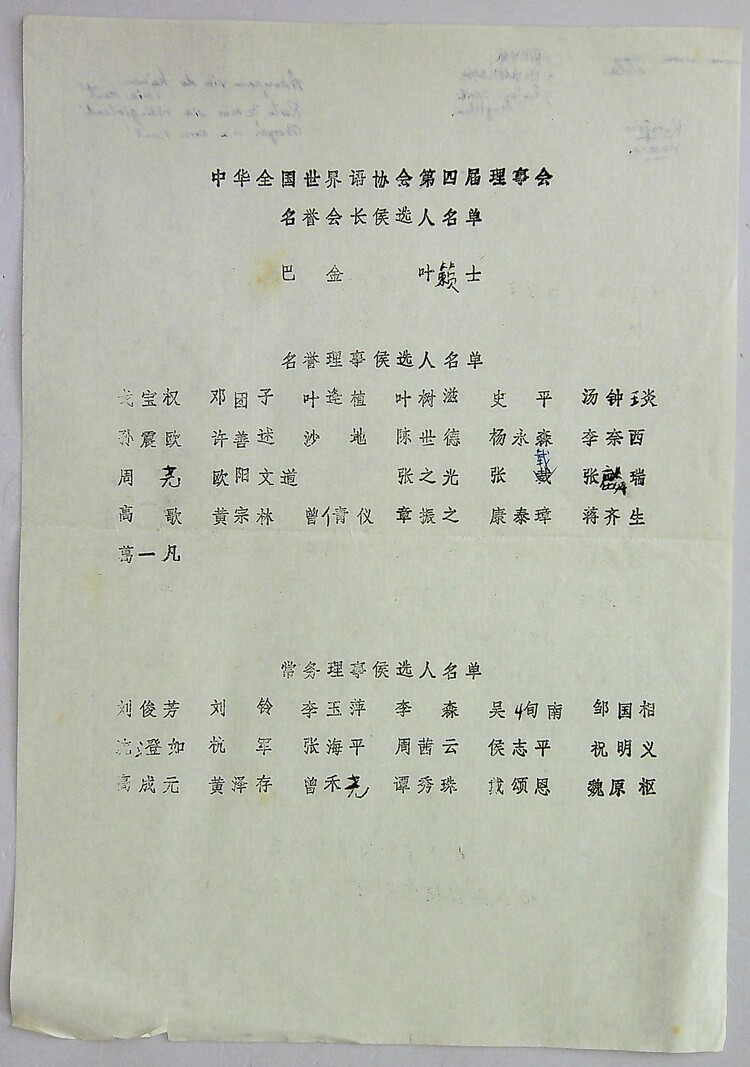 中华全国世界语协会第四届理事会
名誉会长侯选人名单
巴金 叶籁士
名誉理事侯选人名单
戈宝权 邓团子 叶逢植 叶树滋 史平 汤钟琰
孙震欧 许善述 沙地 陈世德 杨永森 李奈西
载
周尧 欧阳文道 张之光 张 张麟瑞
高歌 黄宗林 曾倩仪 章振之 康泰璋 蒋齐生
葛一凡
常务理事侯选人名单
刘俊芳 刘铃 李玉萍 李森 吴旬南 邹国相
沈澄如 杭军 张海平 周茜云 侯志平 祝明义
高成元 黄泽存 曾禾尧 谭秀珠 戴颂恩 魏原枢